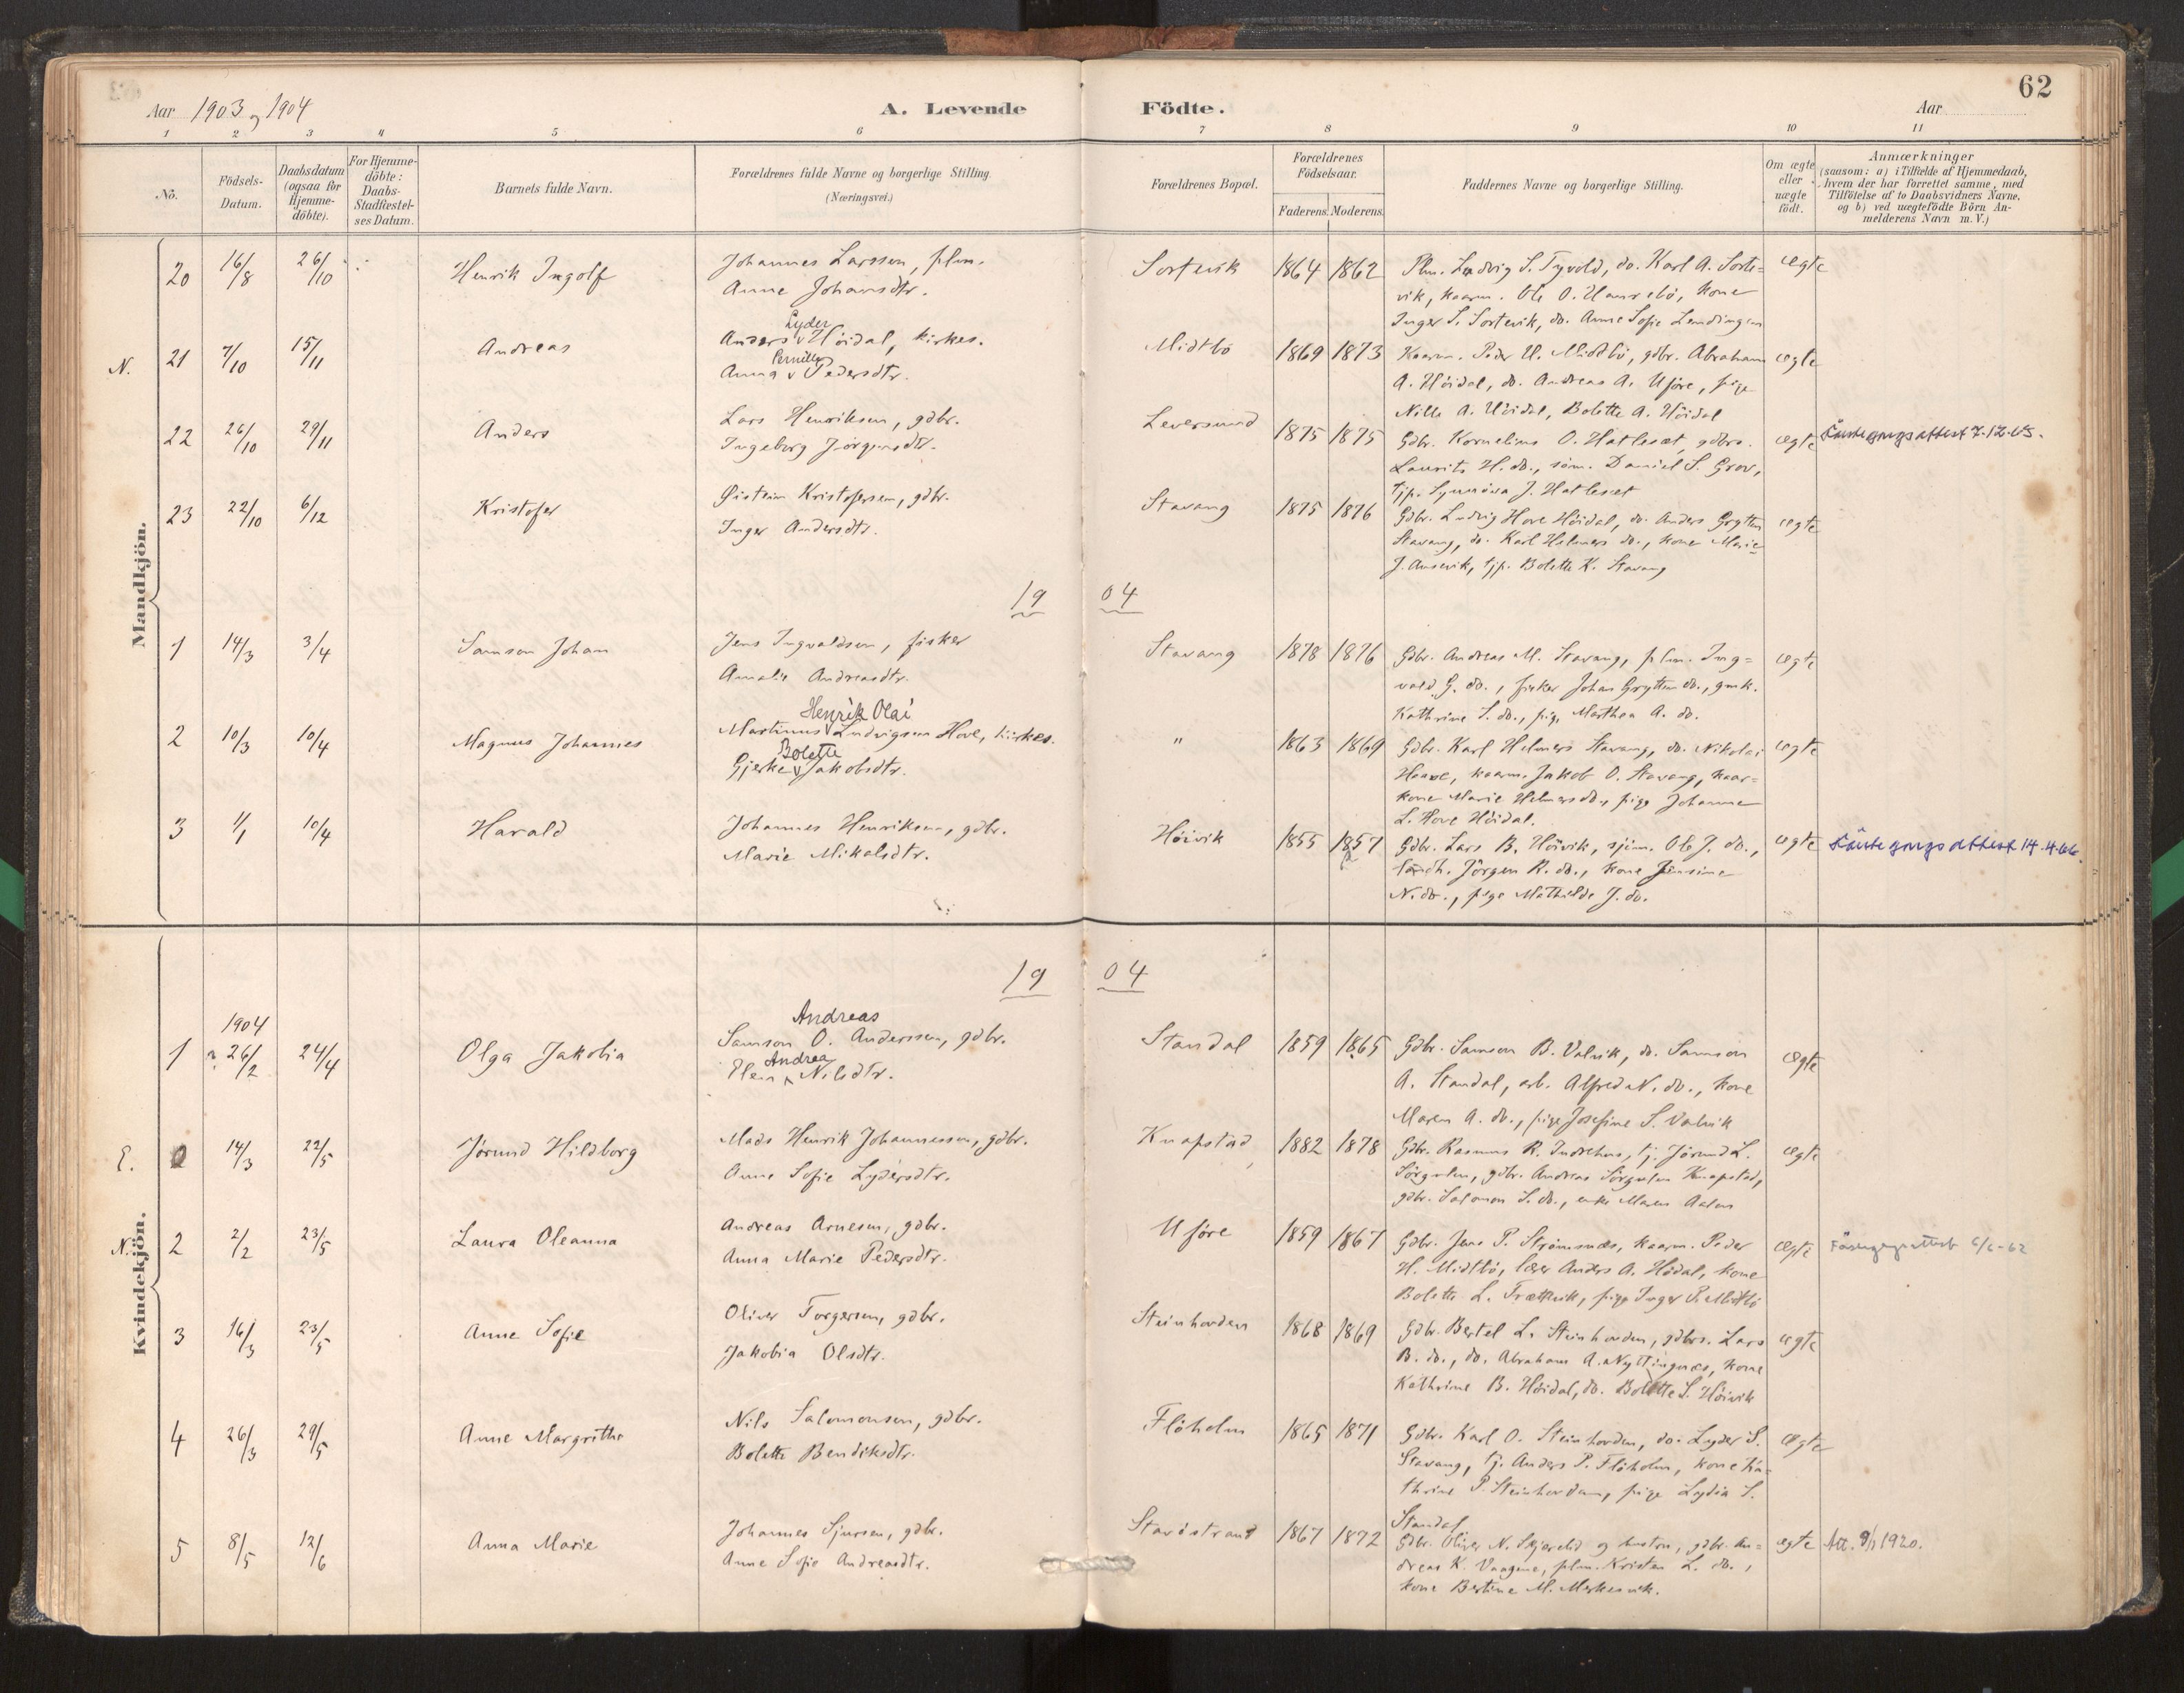 62
Aar 1903 og 1904 A. Levende Födte. Aar
1 2 3 4 5 6 7 8 9 10 11
Nö.
Födsels-Datum.
Daabsdatum (ogsaa for Hjemme-döbte).
For Hjemme-döbte: Daabs-Stadfæstel-ses Datum.
Barnets fulde Navn.
Forældrenes fulde Navne og borgerlige Stilling.
(Næringsvei.)
Forældrenes Bopæl.
Forældrenes Födselsaar.
Faderens. Moderens.
Faddernes Navne og borgerlige Stilling.
Om ægte eller uægte födt.
Anmærkninger
(saasom: a) i Tilfælde af Hjemmedaab,
hvem der har forrettet samme, med
Tilföielse af to Daabsvidners Navne,
og b) ved uægtefödte Börn An-
melderens Navn m. V.)
Mandkjön.
20 16/8 26/10 Henrik Ingolf Johannes Larssen, plm. Sortevik 1864 1862 Plm. Ludvig S. Tyvold, do. Karl A. Sorte= ægte
Anne Johansdtr. vik, kaarm. Ole O. Hamrebö, kone
Inger S. Sortevik, do. Anne Sofie Lendingen
Lyder
N. 21 7/10 15/11 Andreas Anders v Höidal, kirkes. Midtbö 1869 1873 Kaarm. Peder H. Midtbö, gdbr. Abraham ægte
Pernille
Anna v Pedersdtr. A. Höidal, do. Andreas A. Uföre, pige
Nille A. Höidal, Bolette A. Höidal
22 26/10 29/11 Anders Lars Henriksen, gdbr. Leversund 1875 1875 Gdbr. Kornelius O. Hatleset, gdbrs. ægte 7-12-65.
Ingeborg Jörgensdtr. Laurits H. do., söm. Daniel S. Grov,
tjp. Synnöva J. Hatleset
23 22/10 6/12 Kristofer Øistein Kristofersen, gdbr. Stavang 1875 1876 Gdbr. Ludvig Hove Höidal, do. Anders Grytten ægte
Inger Andersdtr. Stavang, do. Karl Helmers do., kone Marie
J. Ausevik, tjp. Bolette K. Stavang
19 04
1 14/3 3/4 Samson Johan Jens Ingvaldsen, fisker Stavang 1878 1876 Gdbr. Andreas M. Stavang, plm. Ing= ægte
Amalie Andreasdtr. vald G. do., fisker Johan Grytten do., gmk.
Kathrine S. do., pige Marthea A. do.
Henrik Olai
2 10/3 10/4 Magnus Johannes Martinus v Ludvigsen Hove, kirkes. " 1863 1869 Gdbr. Karl Helmers Stavang, do. Nikolai ægte
Bolette
Gjerke v Jakobsdtr. Haave, kaarm. Jakob O. Stavang, kaar=
kone Marie Helmers do., pige Johanne
L. Hove Höidal.
3 1/1 10/4 Harald Johannes Henriksen, gdbr. Höivik 1855 1857 Gdbr. Lars B. Höivik, sjöm. Ole J. do., ægte 14.4.66.
Marie Mikalsdtr. landh. Jörgen R. do., kone Jensine
N. do., pige Mathilde J. do.
Kvindekjön.
19 04
1904 Andreas
1 ? 26/2 24/4 Olga Jakobia Samson O. Anderssen, gdbr. Standal 1859 1865 Gdbr. Samson B. Valvik, do. Samson ægte
Andrea
Elen Nilsdtr. A. Standal, arb. Alfred N. do., kone
Maren A. do., pige Josefine S. Valvik
E. 0 14/3 22/5 Jørund Hildborg Mads Henrik Johannessen, gdbr. Knapstad 1882 1878 Gdbr. Rasmus R. Indrehus, tj. Jörund L. ægte
Anne Sofie Lydersdtr. Sörgulen, gdbr. Andreas Sörgulen Knapstad,
gdbr. Salomon S. do., enke Maren Aalen
N. 2 2/2 23/5 Laura Oleanna Andreas Arnesen, gdbr. Uföre 1859 1867 Gdbr. Jens P. Strömsnes, kaarm. Peder ægte 6/6-62
Anna Marie Pedersdtr. H. Midtbö, lærer Anders A. Hödal, kone
Bolette L. Trættevik, pige Inger P. Midtbö
3 16/3 23/5 Anne Sofie Oliver Torgersen, gdbr. Steinhovden 1868 1869 Gdbr. Bertel L. Steinhovden, gdbrs. Lars ægte
Jakobia Olsdtr. B. do., do. Abraham A. Nyttingnæs, kone
Kathrine B. Höidal, do. Bolette S. Höivik
4 26/3 29/5 Anne Margrethe Nils Salomonsen, gdbr. Flöholm 1865 1871 Gdbr. Karl O. Steinhovden, do. Lyder S. ægte
Bolette Bendiksdtr. Stavang, tj. Anders P. Flöholm, kone Ka=
thrine P. Steinhovden, pige Lydia S.
Standal
5 8/5 12/6 Anna Marie Johannes Sjursen, gdbr. Stavöstrand 1867 1872 Gdbr. Oliver N. Skjærelid og hustru, gdbr. An= ægte Att. 9/1 1920.
Anne Sofie Andreasdtr. dreas K. Vaagene, plm. Kristen L. do.,
kone Bertine M. Merkesvik.